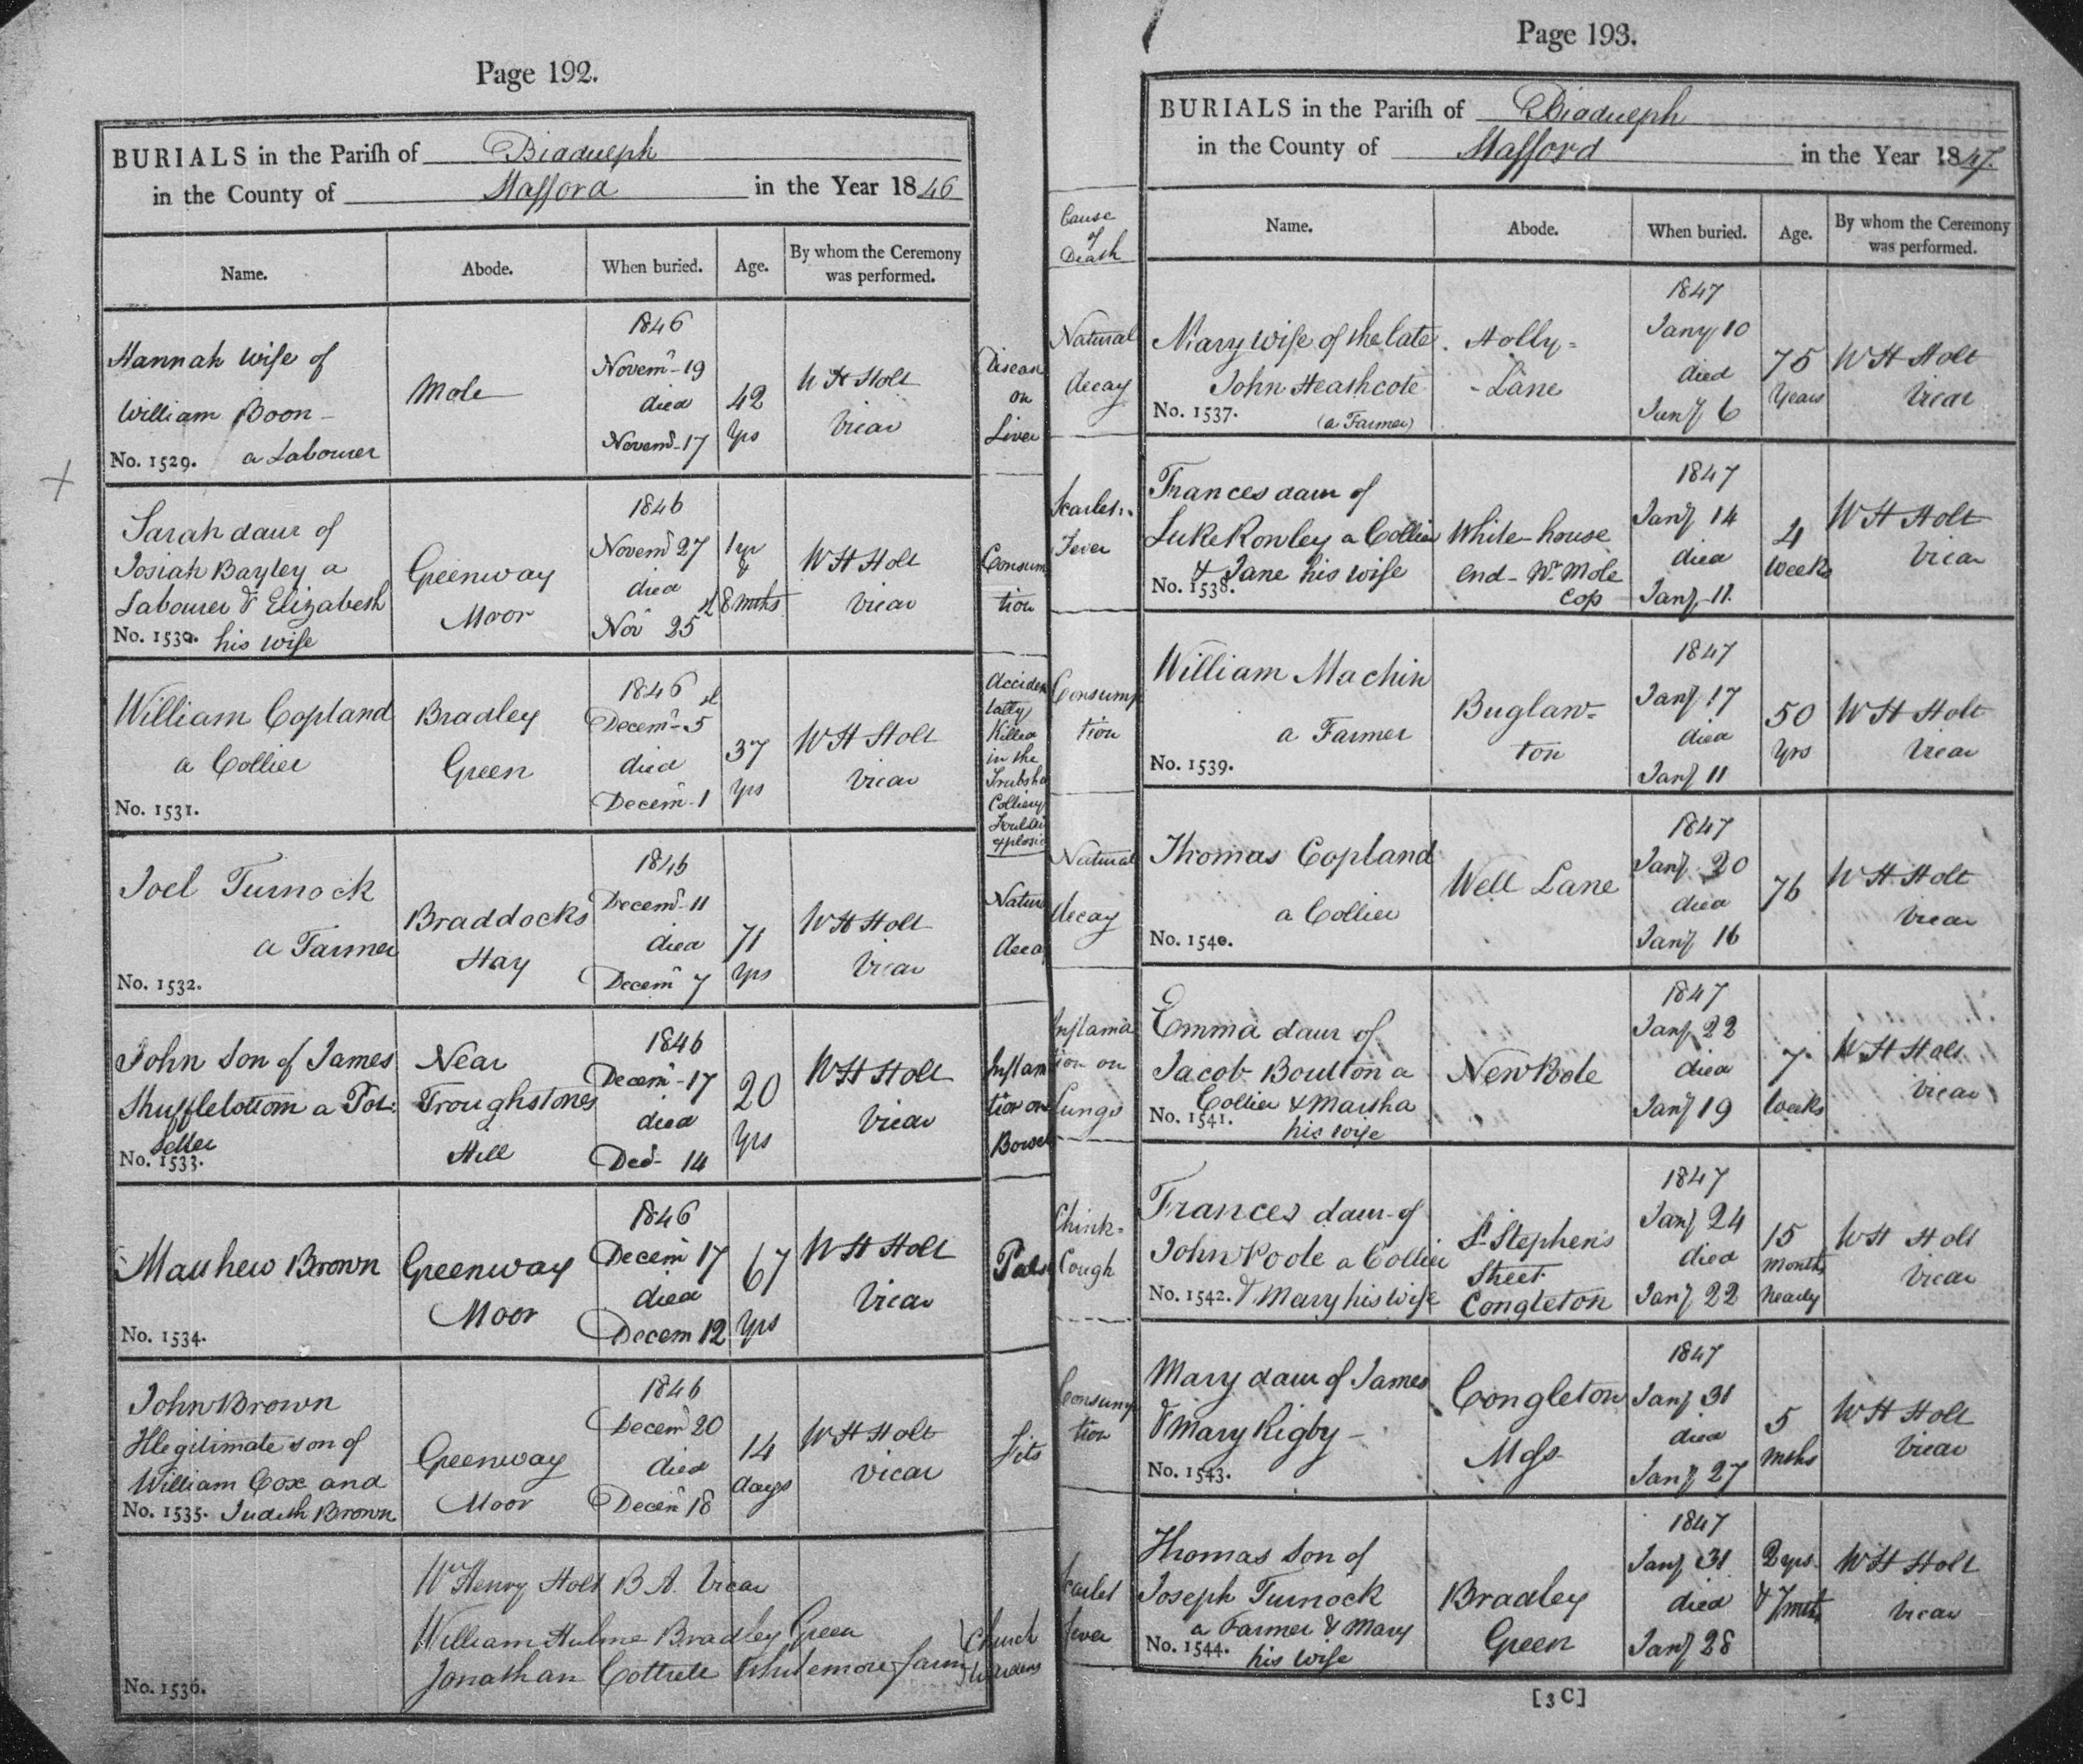 Page 192.
BURIALS in the Pariſh of Biddulph
in the County of Stafford in the Year 1846
Name. Abode. When buried. Age. By whom the Ceremony was performed.
Hannah wife of
William Boon
a Labourer
No. 1529.
Mole
1846
Novemr 19
died
Novemr 17
42
yrs
W H Holt
Vicar
Disease
on
Liver
Sarah daur of
Josiah Bayley a
Labourer & Elizabeth
No. 1530. his wife
Greenway
Moor
1846
Novemr 27
died
Nov 25
1 yr
&
8 mths
W H Holt
Vicar
Consum
tion
William Copland
a Collier
No. 1531.
Bradley
Green
1846
Decemr 5
died
Decemr 1
37
yrs
W H Holt
Vicar
Acciden
tally
Killed
in the
Trubsha
Colliery
explosi
Joel Turnock
a Farmer
No. 1532.
Braddocks
Hay
1846
Decemr 11
died
Decemr 7
71
yrs
W H Holt
Vicar
Natur
deca
John Son of James
Shufflebottom a Pot:
Seller
No. 1533.
Near
Troughstones
Hill
1846
Decemr 17
died
Decr 14
20
yrs
W H Holt
Vicar
Inflam
tion on
Bowel
Matthew Brown
No. 1534.
Greenway
Moor
1846
Decemr 17
died
Decem 12
67
yrs
W H Holt
Vicar
Palsy
John Brown
Illegitimate son of
William Cox and
No. 1535. Judith Brown
Greenway
Moor
1846
Decemr 20
died
Decemr 18
14
days
W H Holt
Vicar
Fits
Wm Henry Holt B A. Vicar
William Hulme Bradley Green
Jonathan Cottrell Whitemore farm
Church
Wardens
No. 1536.
Page 193.
BURIALS in the Pariſh of Biddulph
in the County of Stafford in the Year 1847.
Cause
of
Death
Name. Abode. When buried. Age. By whom the Ceremony was performed.
Natural
decay
Mary wife of the late
John Heathcote
No. 1537. (a Farmer)
Holly=
-Lane
1847
Jany 10
died
Jany 6
75
Years
W H Holt
Vicar
Scarlet
Fever
Frances daur of
Luke Rowley a Collier
& Jane his wife
No. 1538.
White-house
end - Nr Mole
Cop
1847
Jany 14
died
Jany 11.
4
weeks
W H Holt
Vicar
Consump
tion
William Machin
a Farmer
No. 1539.
Buglaw=
ton
1847
Jany 17
died
Jany 11
50
yrs
W H Holt
Vicar
Natural
decay
Thomas Copland
a Collier
No. 1540.
Well Lane
1847
Jany 20
died
Jany 16
76
W H Holt
Vicar
Inflama
tion on
Lungs
Emma daur of
Jacob Boulton a
Collier & Martha
No. 1541. his wife
New Pole
1847
Jany 22
died
Jany 19
7
weeks
W H Holt
Vicar
Chink-
Cough
Frances daur of
John Poole a Collier
No. 1542. & Mary his wife
St Stephens
Street
Congleton
1847
Jany 24
died
Jany 22
15
months
nearly
W H Holt
Vicar
Consump
tion
Mary daur of James
& Mary Rigby -
No. 1543.
Congleton
Moss
1847
Jany 31
died
Jany 27
5
mths
W H Holt
Vicar
Scarlet
fever
Thomas Son of
Joseph Turnock
a Farmer & Mary
No. 1544. his wife
Bradley
Green
1847
Jany 31
died
Jany 28
2 yrs
& 7 mths
W H Holt
Vicar
[3C]